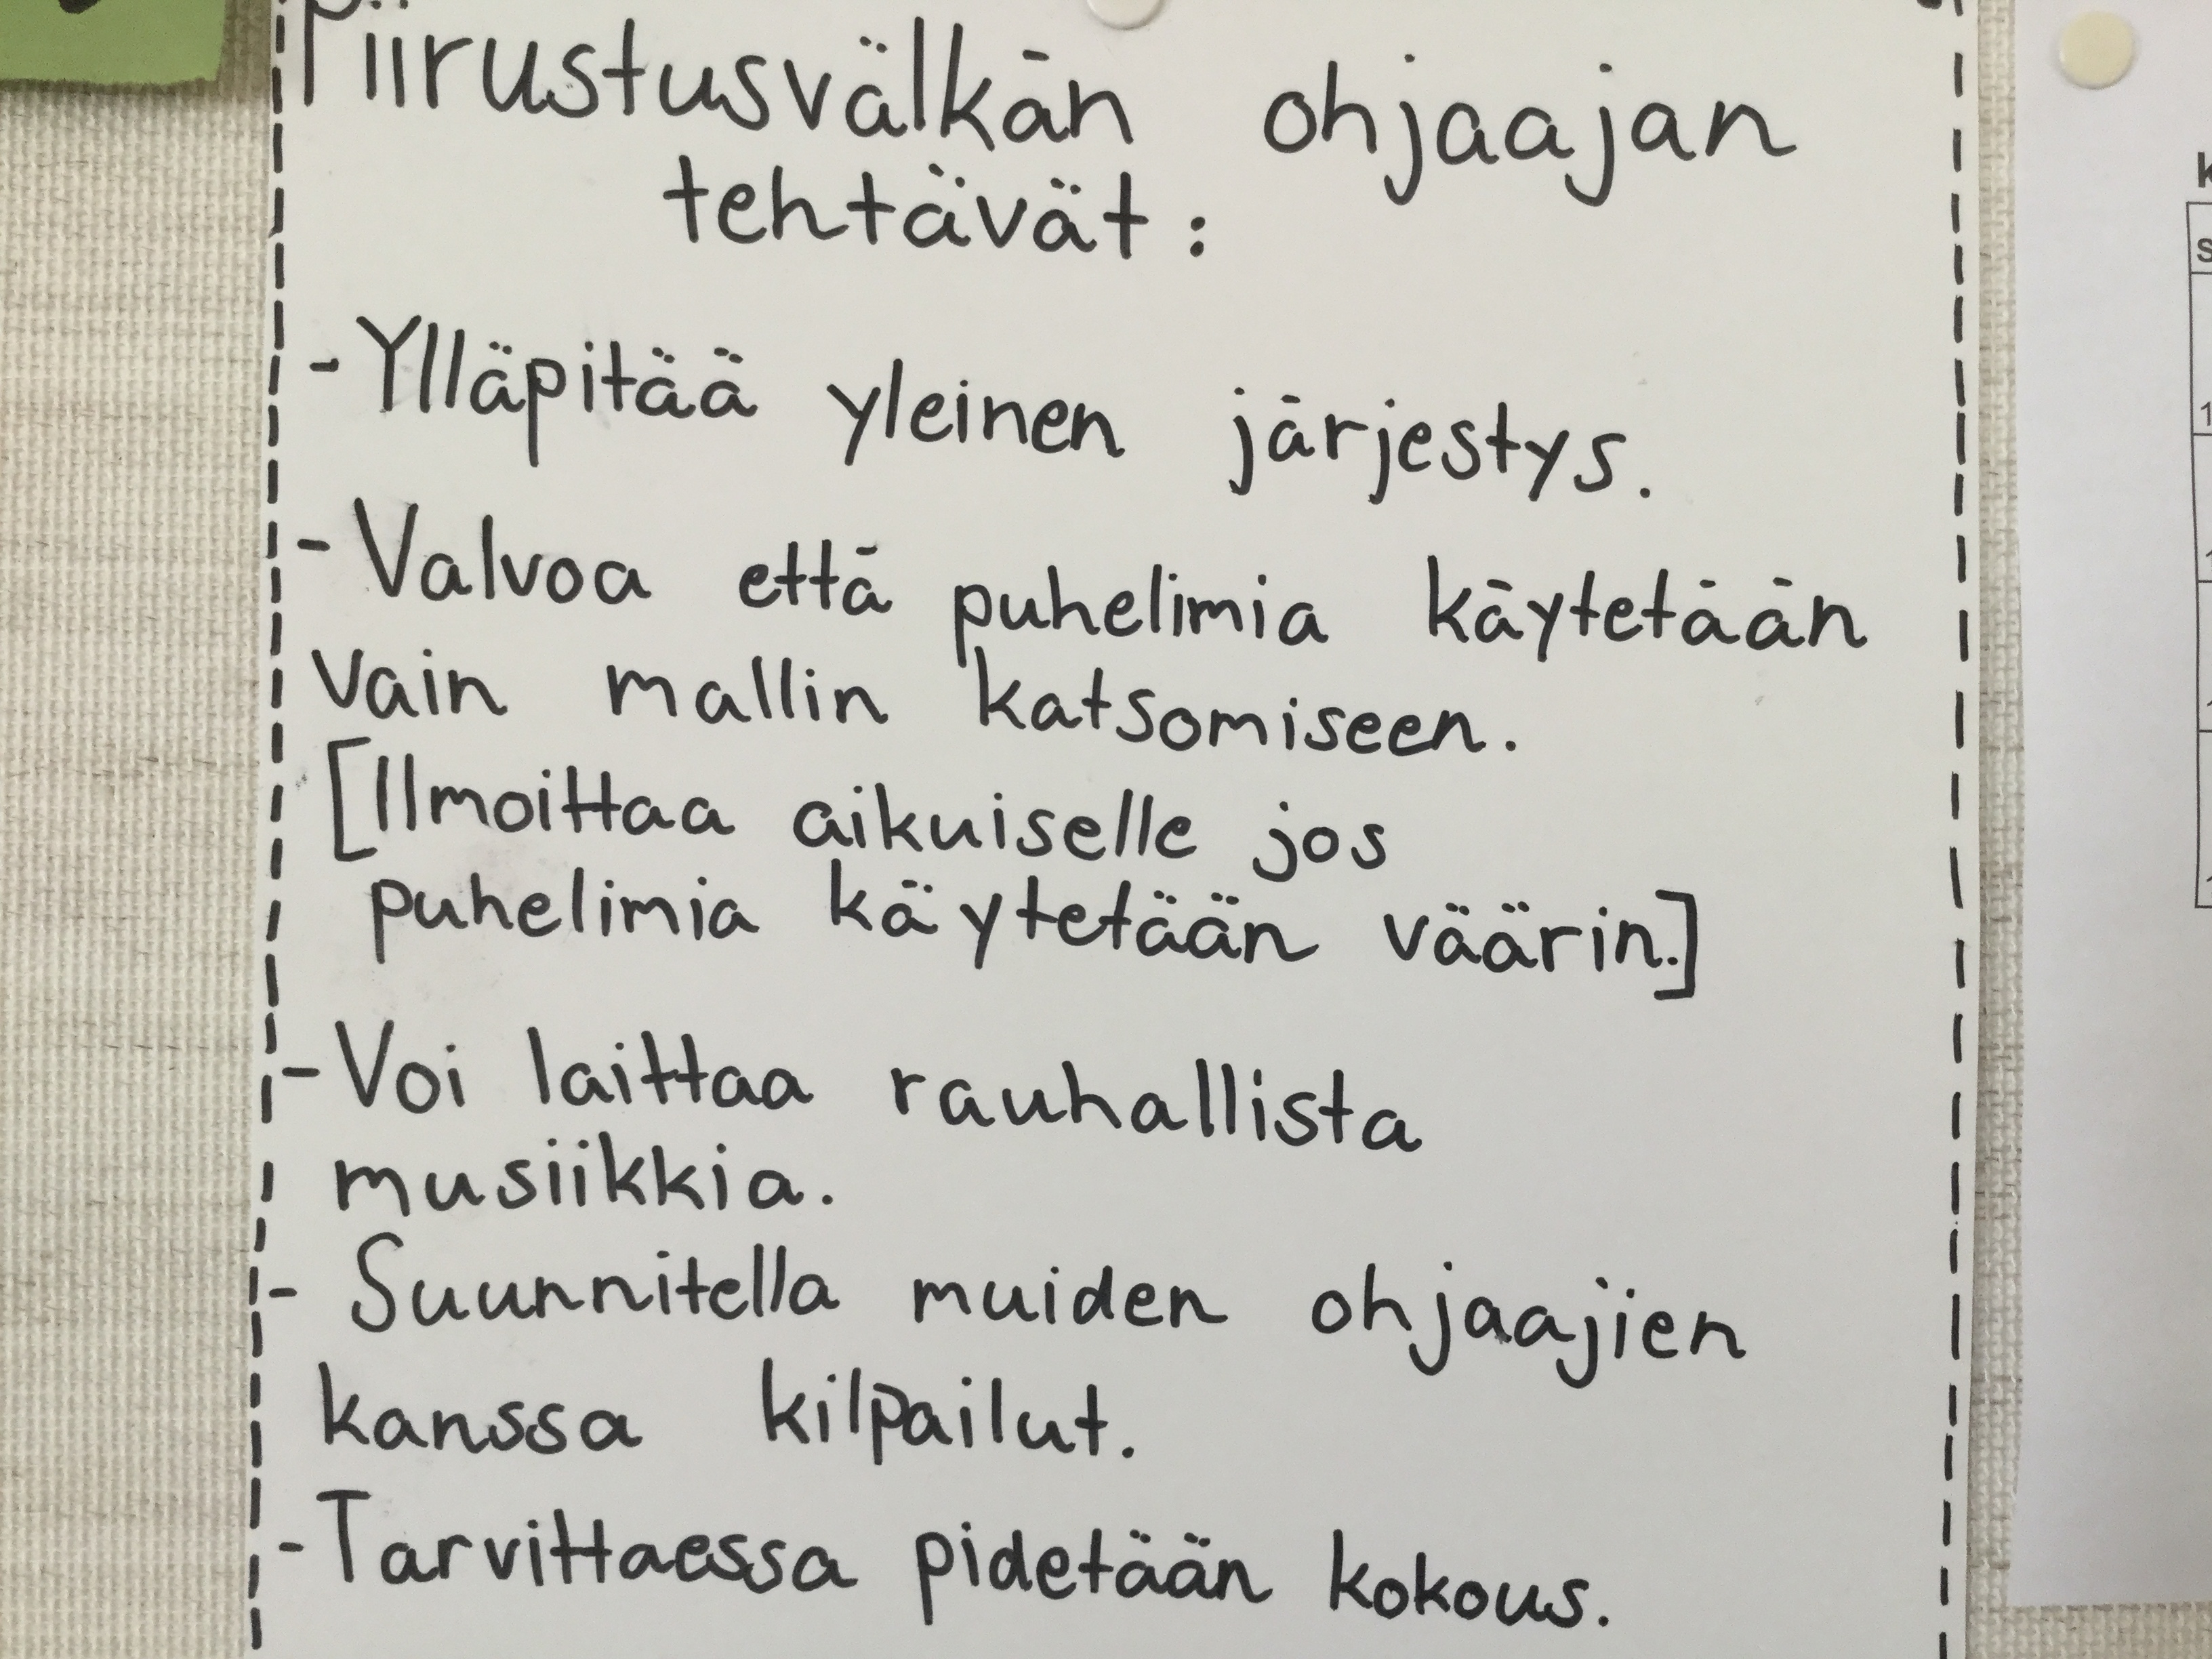 Piirustusvälkän ohjaajan
tehtävät:
-Ylläpitää yleinen järjestys.
-Valvoa että puhelimia käytetään
vain mallin katsomiseen.
[Ilmoittaa aikuiselle jos
puhelimia käytetään väärin.]
-Voi laittaa rauhallista
musiikkia.
- Suunnitella muiden ohjaajien
kanssa kilpailut.
-Tarvittaessa pidetään kokous.